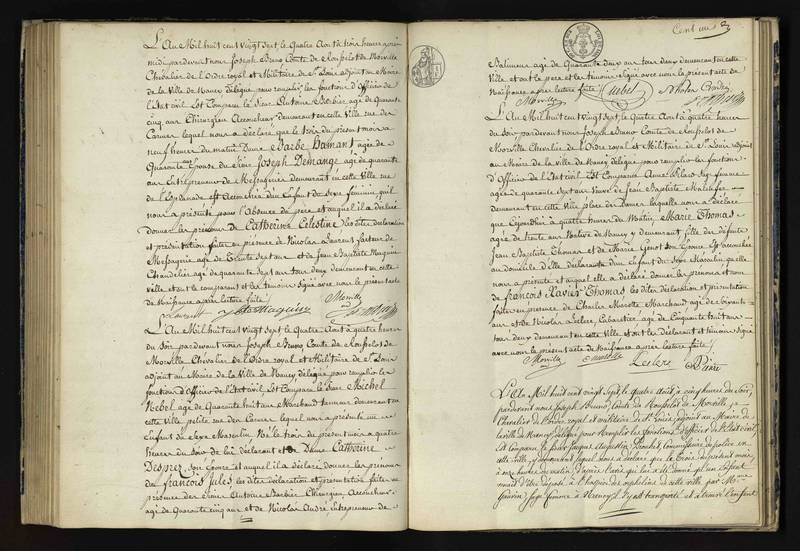 L'An Mil huit cent vingt sept le Quatre Août à trois heures après
midi pardevant nous Joseph Bruno Comte de Rousselot de Morville
Chevalier de l'Ordre royal et Militaire de St Louis adjoint au Maire
de la Ville de Nancy délégué pour remplir les fonctions d'Officier de
l'Etat civil Est Comparu le Sieur Antoine Barbier agé de Quarante
cinq ans Chirurgien Accoucheur demeurant en cette Ville rue des
Carmes lequel nous a déclaré que le trois du présent mois à
neuf heures du matin Dame Barbe Hamant agée de
Quarante ans Epouse du Sieur Joseph Demange agé de quarante
ans Entrepreneur de Messageries demeurant en cette Ville rue
de l'Esplanade est Accouchée d'un Enfant du Sexe féminin qu'il
nous a présenté pour l'absence du père et auquel il a déclaré
donner les prénoms de Catherine Celestine Les dites déclaration
et présentation faites en présence de Nicolas Laurent facteur de
Messagerie agé de Trente sept ans et de Jean Baptiste
Chandelier agé de quarante sept ans tous deux demeurant en cette
ville et ont le comparant et les témoins Signé avec nous le présent acte
de Naissance après lecture faite
Laurent Morville
L'An Mil huit cent Vingt Sept le Quatre Août à quatre heures
du Soir pardevant nous Joseph Bruno Comte de Rousselot de
Morville Chevalier de l'Ordre royal et Militaire de St Louis
adjoint au Maire de la Ville de Nancy délégué pour remplir les
fonctions d'Officier de l'Etat civil Est Comparu le Sieur Michel
Hebel agé de Quarante huit ans Marchand tanneur demeurant en
cette Ville petite rue des Carmes lequel nous a présenté un
Enfant du Sexe Masculin Né le trois du présent mois à quatre
heures du Soir de lui déclarant et de Dame Catherine
Desprez Son Epouse et auquel il a déclaré donner les prénoms
de François Jules Les dites déclaration et présentation faites en
présence des Sieurs Antoine Barbier Chirurgien Accoucheur
agé de Quarante cinq ans et de Nicolas André Entrepreneur de
Cent un
Batiments agé de Quarante deux ans tous deux demeurant en cette
Ville et ont le père et les témoins Signé avec nous le présent acte de
Naissance après lecture faite
Morville
L'An Mil huit cent Vingt Sept le Quatre Août à quatre heures
du Soir pardevant nous Joseph Bruno Comte de Rousselot de
Morville Chevalier de l'Ordre royal et Militaire de St Louis adjoint
au Maire de la Ville de Nancy délégué pour remplir les fonctions
d'Officier de l'Etat civil Est Comparue Anne Sage femme
agée de quarante sept ans Veuve de Jean Baptiste
demeurant en cette Ville place des Dames laquelle nous a déclaré
que Cejourd'hui à quatre heures du Matin Marie Thomas
agée de trente ans Native de Nancy y demeurant fille des défunts
Jean Baptiste Thomas et de Marie Genot Son Epouse Est accouchée
au domicile d'Elle déclarante d'un Enfant du Sexe Masculin qu'elle
nous a présenté et auquel elle a déclaré donner les prénoms et nom
de François Xavier Thomas Les dites Déclaration et présentation
faites en présence de Charles Marchand agé de
ans et de Nicolas Leclerc Cabaretier agé de Cinquante
tous deux demeurant en cette Ville et ont les Déclarant et témoins Signé
avec nous le présent acte de Naissance après lecture faite
Morville Leclerc
L'An Mil huit cent vingt Sept, le quatre Août, à cinq heures du Soir,
pardevant nous Joseph Bruno, Comte de Rousselot de Morville,
Chevalier de l'ordre royal et militaire de St Louis, adjoint au Maire de
la ville de Nancy, délégué pour remplir les fonctions d'officier de l'Etat civil,
Est comparu le Sieur Commissaire de police en
cette ville, y demeurant lequel nous a déclaré que le Trois du présent mois,
à onze heures du matin, d'après l'avis qui lui a été donné qu'un Enfant
venait d'être déposé à l'hospice des orphelins de cette ville par Mme
Sage femme à Nancy, il s'y est transporté et a trouvé l'enfant